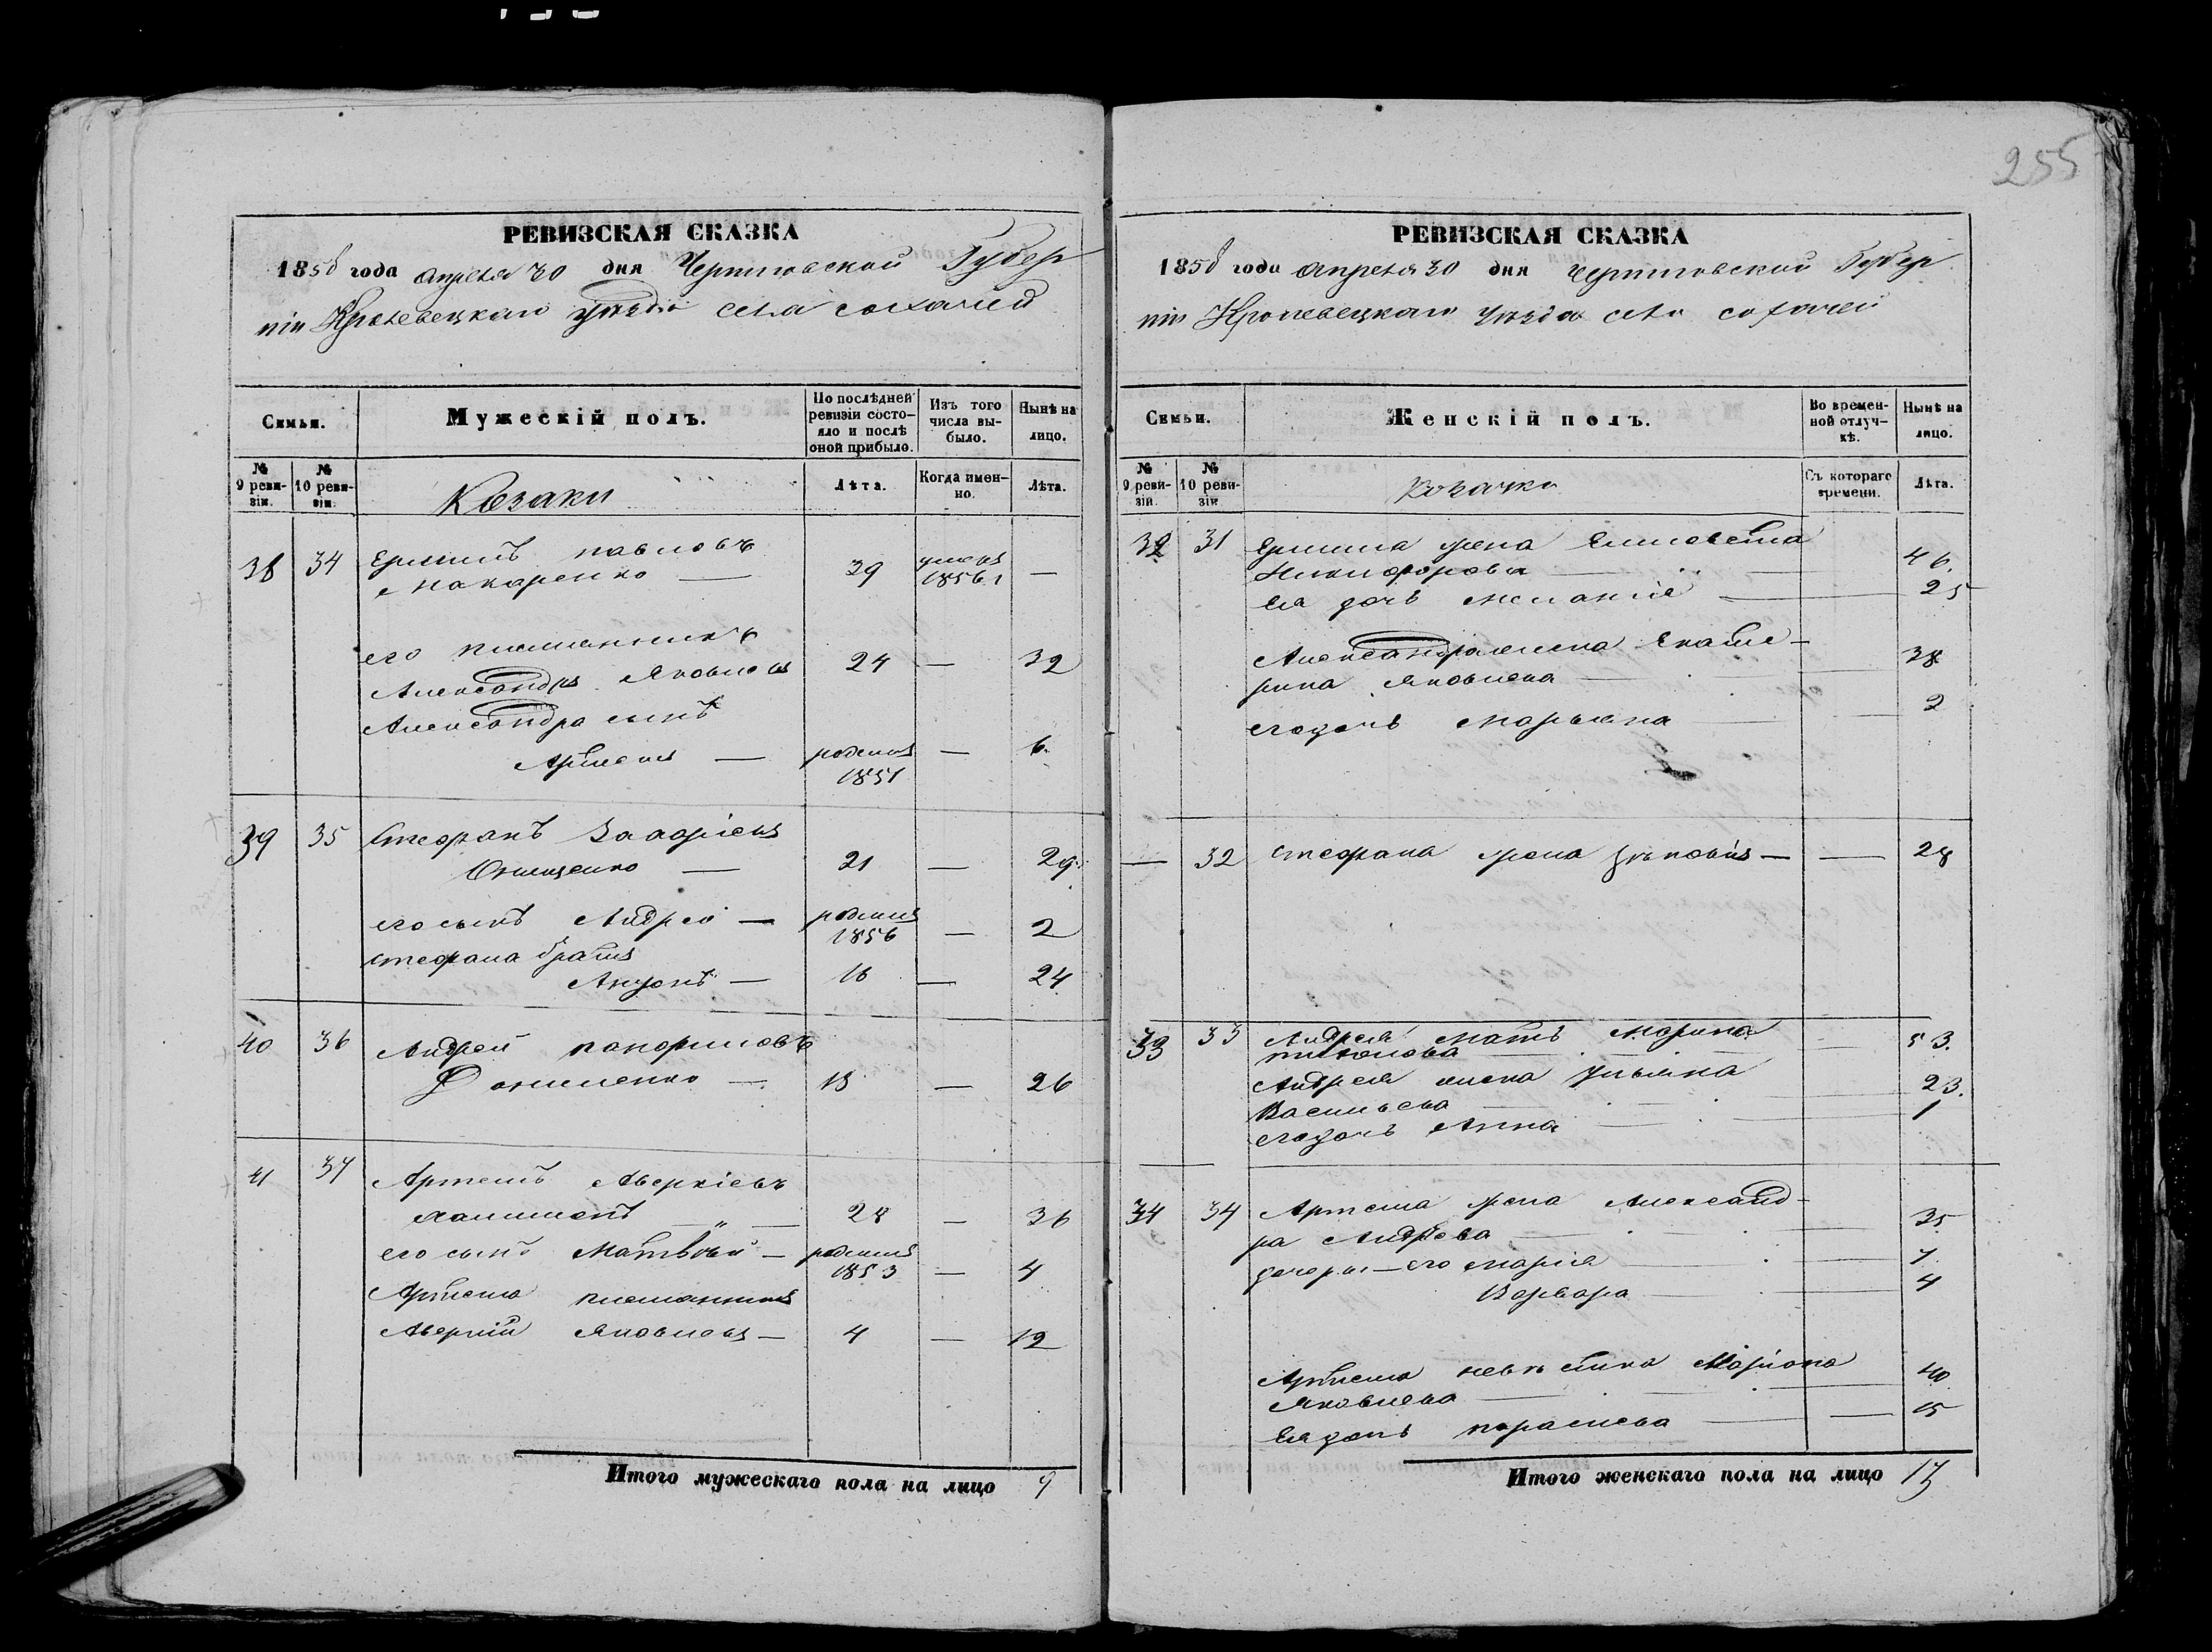 255
РЕВИЗСКАЯ СКАЗКА
1858 года апреля 30 дня Черниговской Губер
ніи Кролевецкаго уѣзда села сохачей
Семьи.
Мужескій полъ.
По послѣдней ревизіи состояло и послѣ оной прибыло.
Изъ того числа выбыло.
Нынѣ на лицо.
№ 9 ревизіи.
№ 10 ревизіи.
Козаки
Лѣта.
Когда именно.
Лѣта.
38 34 Ермилъ павловъ
Макаренко — 39 умеръ 1856 г —
его племянникъ
Александръ Яковлевъ 24 — 32
Александра сынъ
Артемъ — родился 1851 — 6
39 35 Стефанъ
Онищенко — 21 — 29
его сынъ Андрей — родился 1856 — 2
стефана братъ
— 16 — 24
40 36 Андрей
— 18 — 26
41 37 Артемъ Аверкіевъ
28 — 36
его сынъ Матвѣй — родился 1853 — 4
Артема племянникъ
Аверкій Яковлевъ — 4 — 12
Итого мужескаго пола на лицо 9
РЕВИЗСКАЯ СКАЗКА
1858 года апреля 30 дня Черниговской Губер
ніи Кролевецкаго уѣзда села сохачей
Семьи.
Женскій полъ.
Во временной отлучкѣ.
Нынѣ на лицо.
№ 9 ревизіи.
№ 10 ревизіи.
Козачки
Съ котораго времени.
Лѣта.
32 31 Ермила жена Елисавета
Никифорова — 46
Ея дочь Меланія — 25
Александра жена Екате-
рина Яковлева — 38
его дочь Марьяна — 2
— 32 стефана жена — — 28
33 33 Андрея мать Марина
— 53
Андрея жена Ульяна
Васильева — 23
его дочь Анна — 1
34 34 Артема жена Александ-
ра Андреева — 35
дочери его Марія — 7
Варвара — 4
Артема невѣстка Маріана
Яковлева — 40
Ея дочь — — 15
Итого женскаго пола на лицо 13